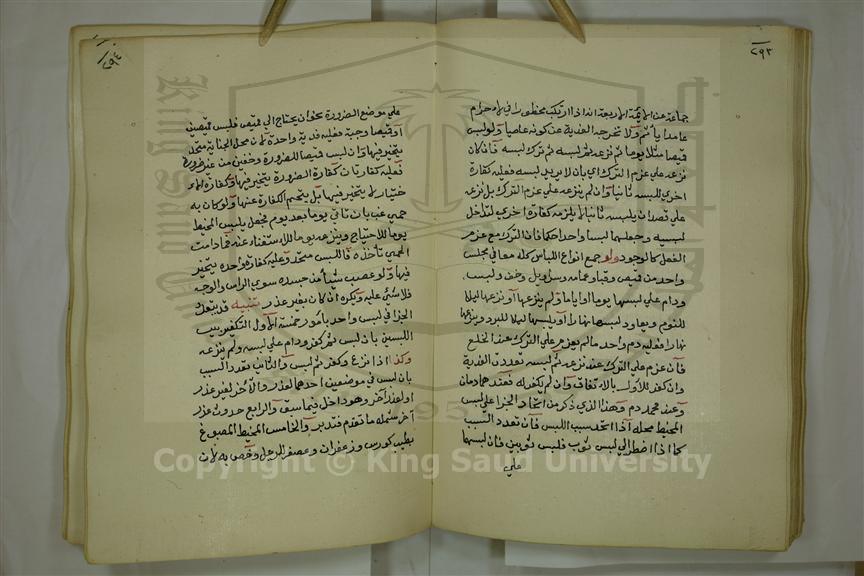 ٢٩٣
جماعة عن الائمة الاربعة انه اذا ارتكب محظورا في الاحرام
عامدا ياثم ولا تخرجه الفدية عن كونه عاصيا ولو لبس
قميصا مثلا يوما ثم نزعه ثم لبسه ثم ترك لبسه فان كان
نزعه علي عزم الترك اي بان لا يريد لبسه فعليه كفارة
اخري للبسه ثانيا وان لم ينزعه علي عزم الترك بل نزعه
علي قصد ان يلبسه ثانيا لا يلزمه كفارة اخري لتداخل
لبسيه وجعلهما لبسا واحدا حكما فان الترك مع عزم
الفعل كالوجود ولو جمع انواع اللباس كلا معا في مجلس
واحد من قميص وقبا وعمامه وسراويل وخف ولبس
ودام علي لبسها يوما او اياما ولم ينزعها او نزعها ليلا
للنوم ويعاود لبسها نهارا او يلبسها ليلا للبرد وينزعها
نهارا فعليه دم واحد ما لم يعزم علي الترك عند الخلع
فان عزم علي الترك عند نزعه ثم لبسه تعددت الفدية
وان كفر للاول بالاتفاق وان لم يكفر له فعندهما دمان
وعند محمد دم وهذا الذي ذكر من اتحاد الجزا علي لبس
المخيط محله اذا اتحد سبب اللبس فان تعدد السبب
كما اذا اضطر الي لبس ثوب فلبس ثوبين فان لبسها
علي
٢٩٤
علي موضع الضرورة بنحو ان يحتاج الي قميص فلبس قميصين
او قميصا وجبة فعليه فدية واحدة لان محل الجناية متحد
يتخير فيها وان لبس قميصا للضرورة وخفين من غير ضرورة
فعليه كفارتان كفارة الضرورة يتخير فيها وكفارة الاخـ
ختيار لا يتخير فيها بل يتحتم الكفارة عنها ولو كان به
حمي غب بان تاتي يوما بعد يوم فجعل يلبس المخيط
يوما للاحتياج وينزعه يوما للاستغناء عنه فما دامت
الحمي تاخذه فاللبس متحد وعليه كفارة واحدة يتخير
فيها ولو عصب شيأ من جسده سوي الراس والوجه
فلا شئ عليه ويكره ان كان بغير عذر تنبيه قد يتعدد
الجزا في لبس واحد بامور خمسة الاول التكفير بين
اللبسين بان لبس ثم كفر ودام علي لبسه ولم ينزعه
وكذا اذا نزع وكفر ثم لبس والثاني تعدد السبب
بان لبس في موضعين احدهما لعذر والاخر لغير عذر
او لعذر آخر وهو داخل فيما سبق والرابع حدوث عذر
آخر شمله ما تقدم فتدبر والخامس المخيط المصبوغ
بطيب كورس وزعفران وعصفر للرجل وخص به لان
Copyright © King Saud University